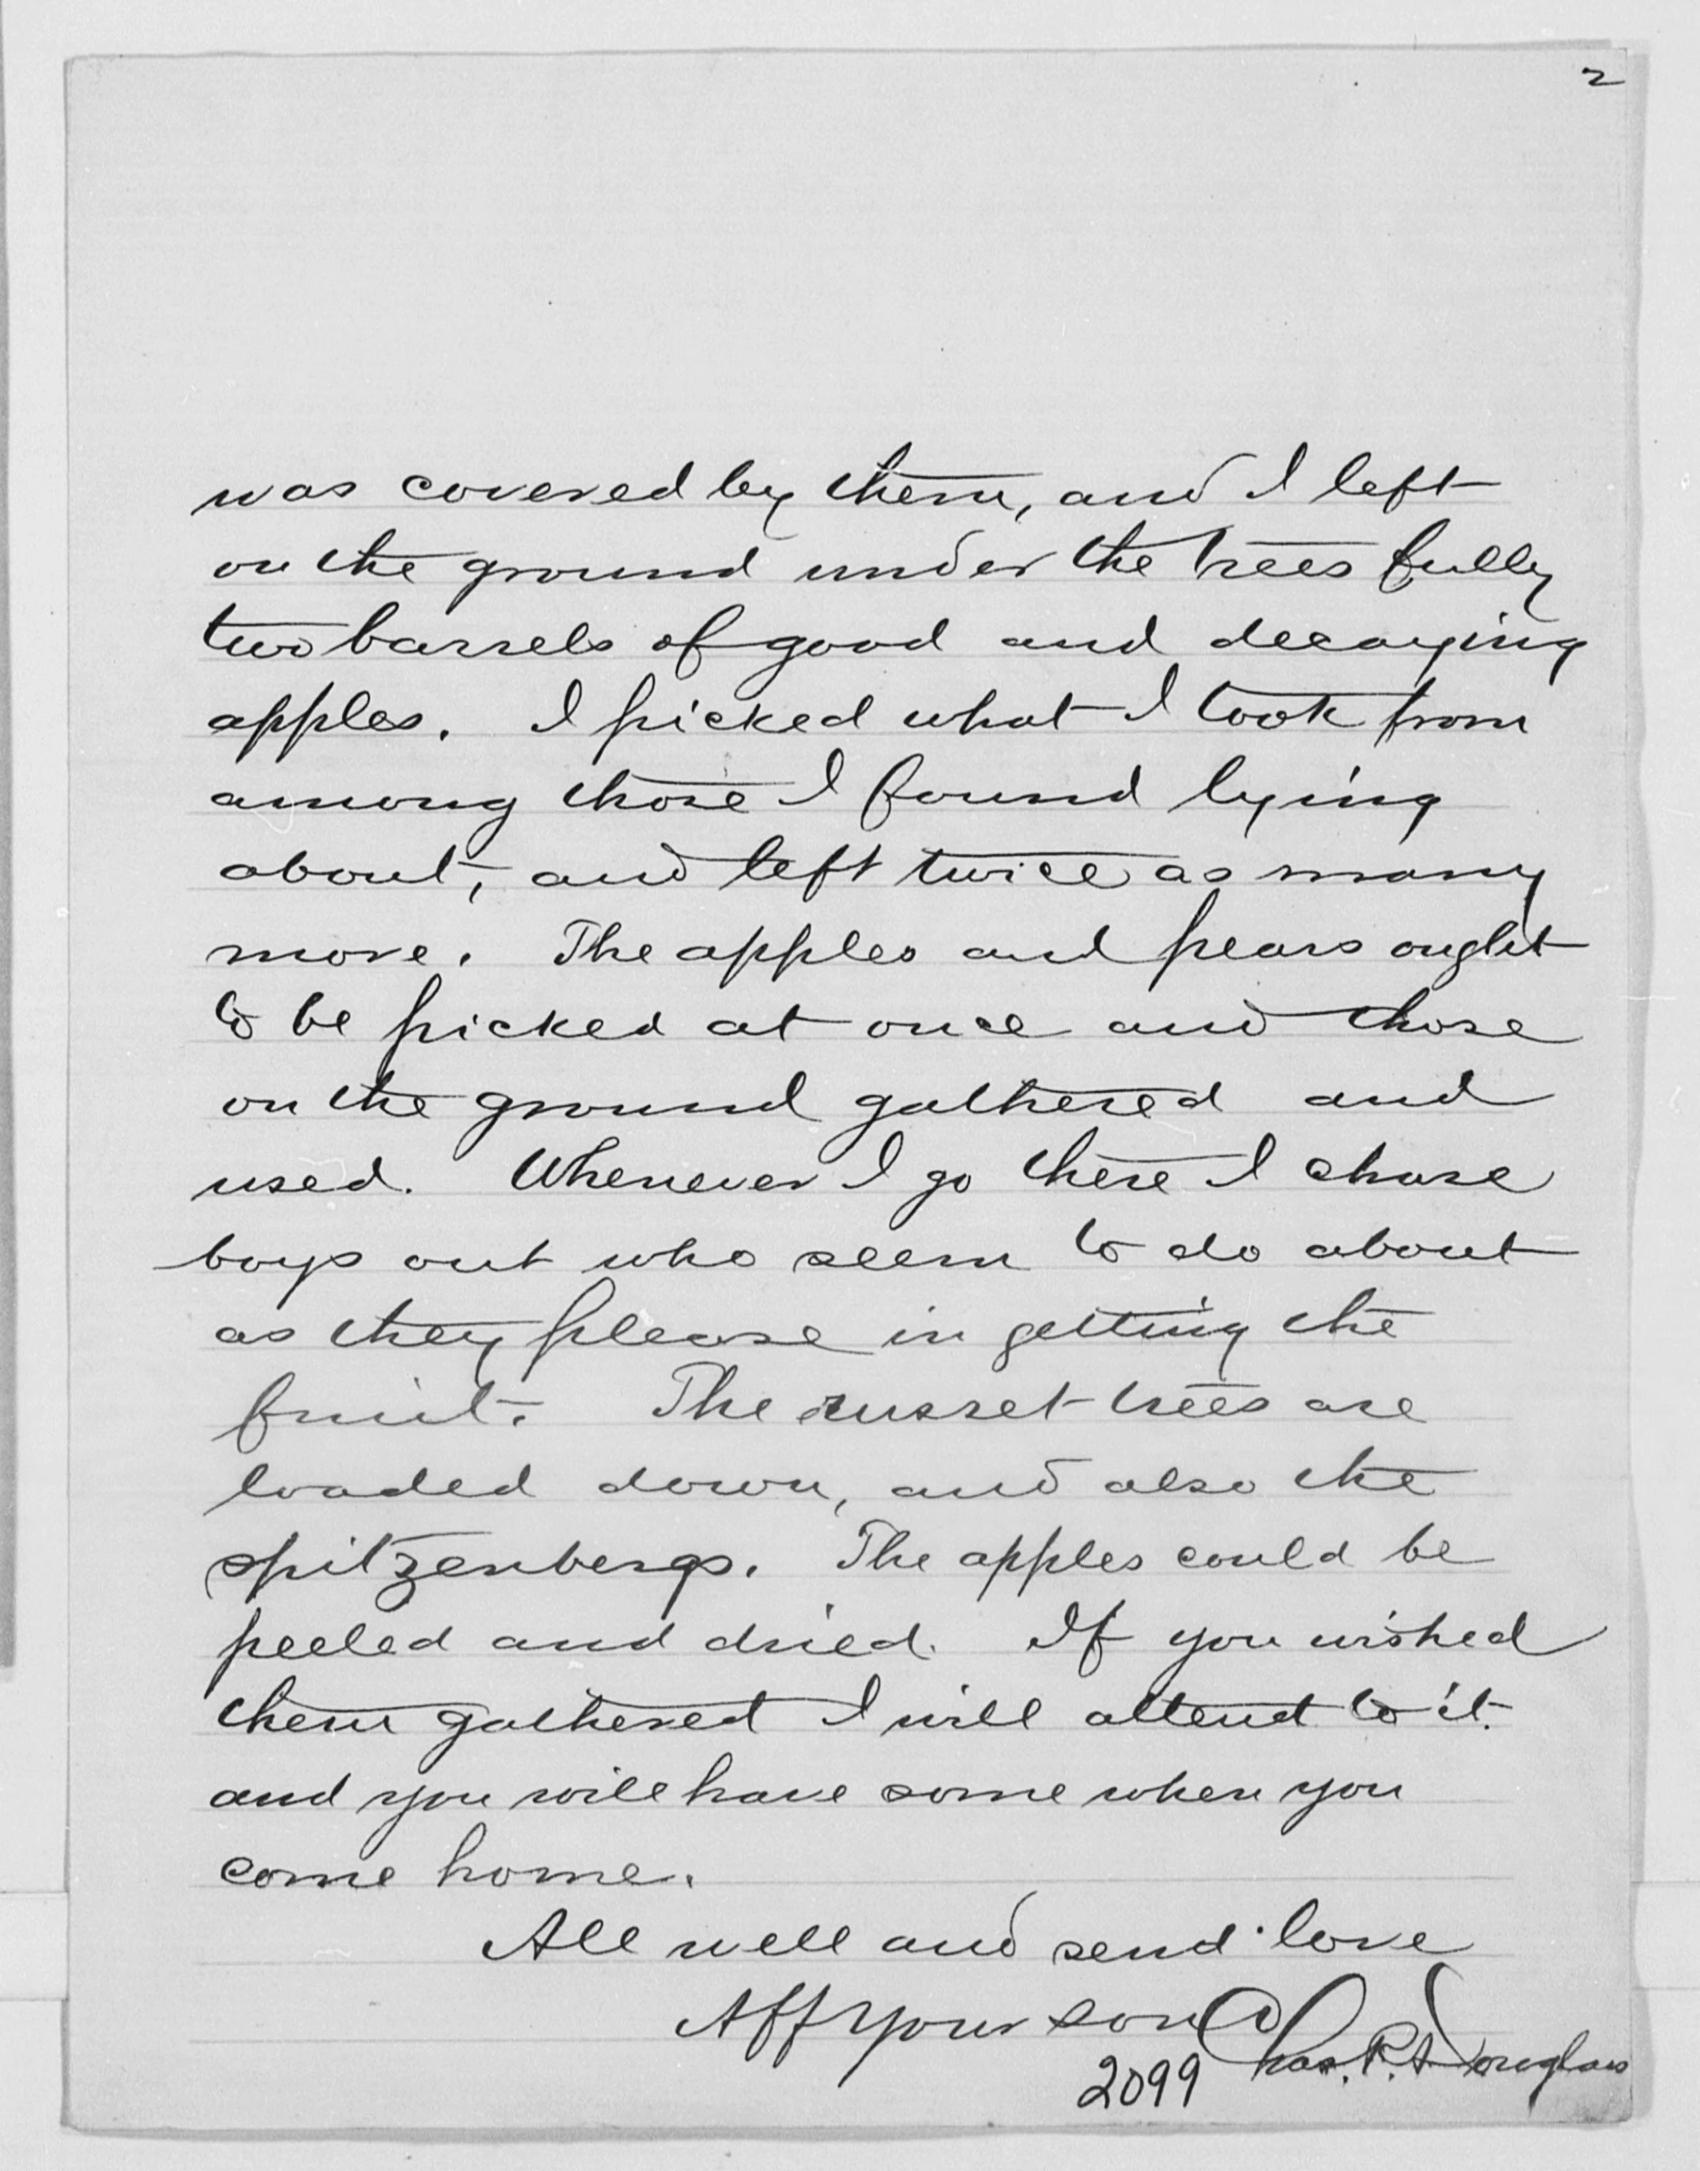 2
was covered by them, and I left
on the ground under the trees fully
two barrels of good and decaying
apples. I picked what I took from
among those I found lying
about, and left twice as many
more. The apples and pears ought
to be picked at once and those
on the ground gathered and
used. Whenever I go there I chase
boys out who seem to do about
as they please in getting the
fruit. The russet trees are
loaded down, and also the
spitzenbergs. The apples could be
peeled and dried. If you wished
them gathered I will attend to it.
and you will have some when you
come home.
All well and send love
Aff your son Chas. R. Douglass
2099